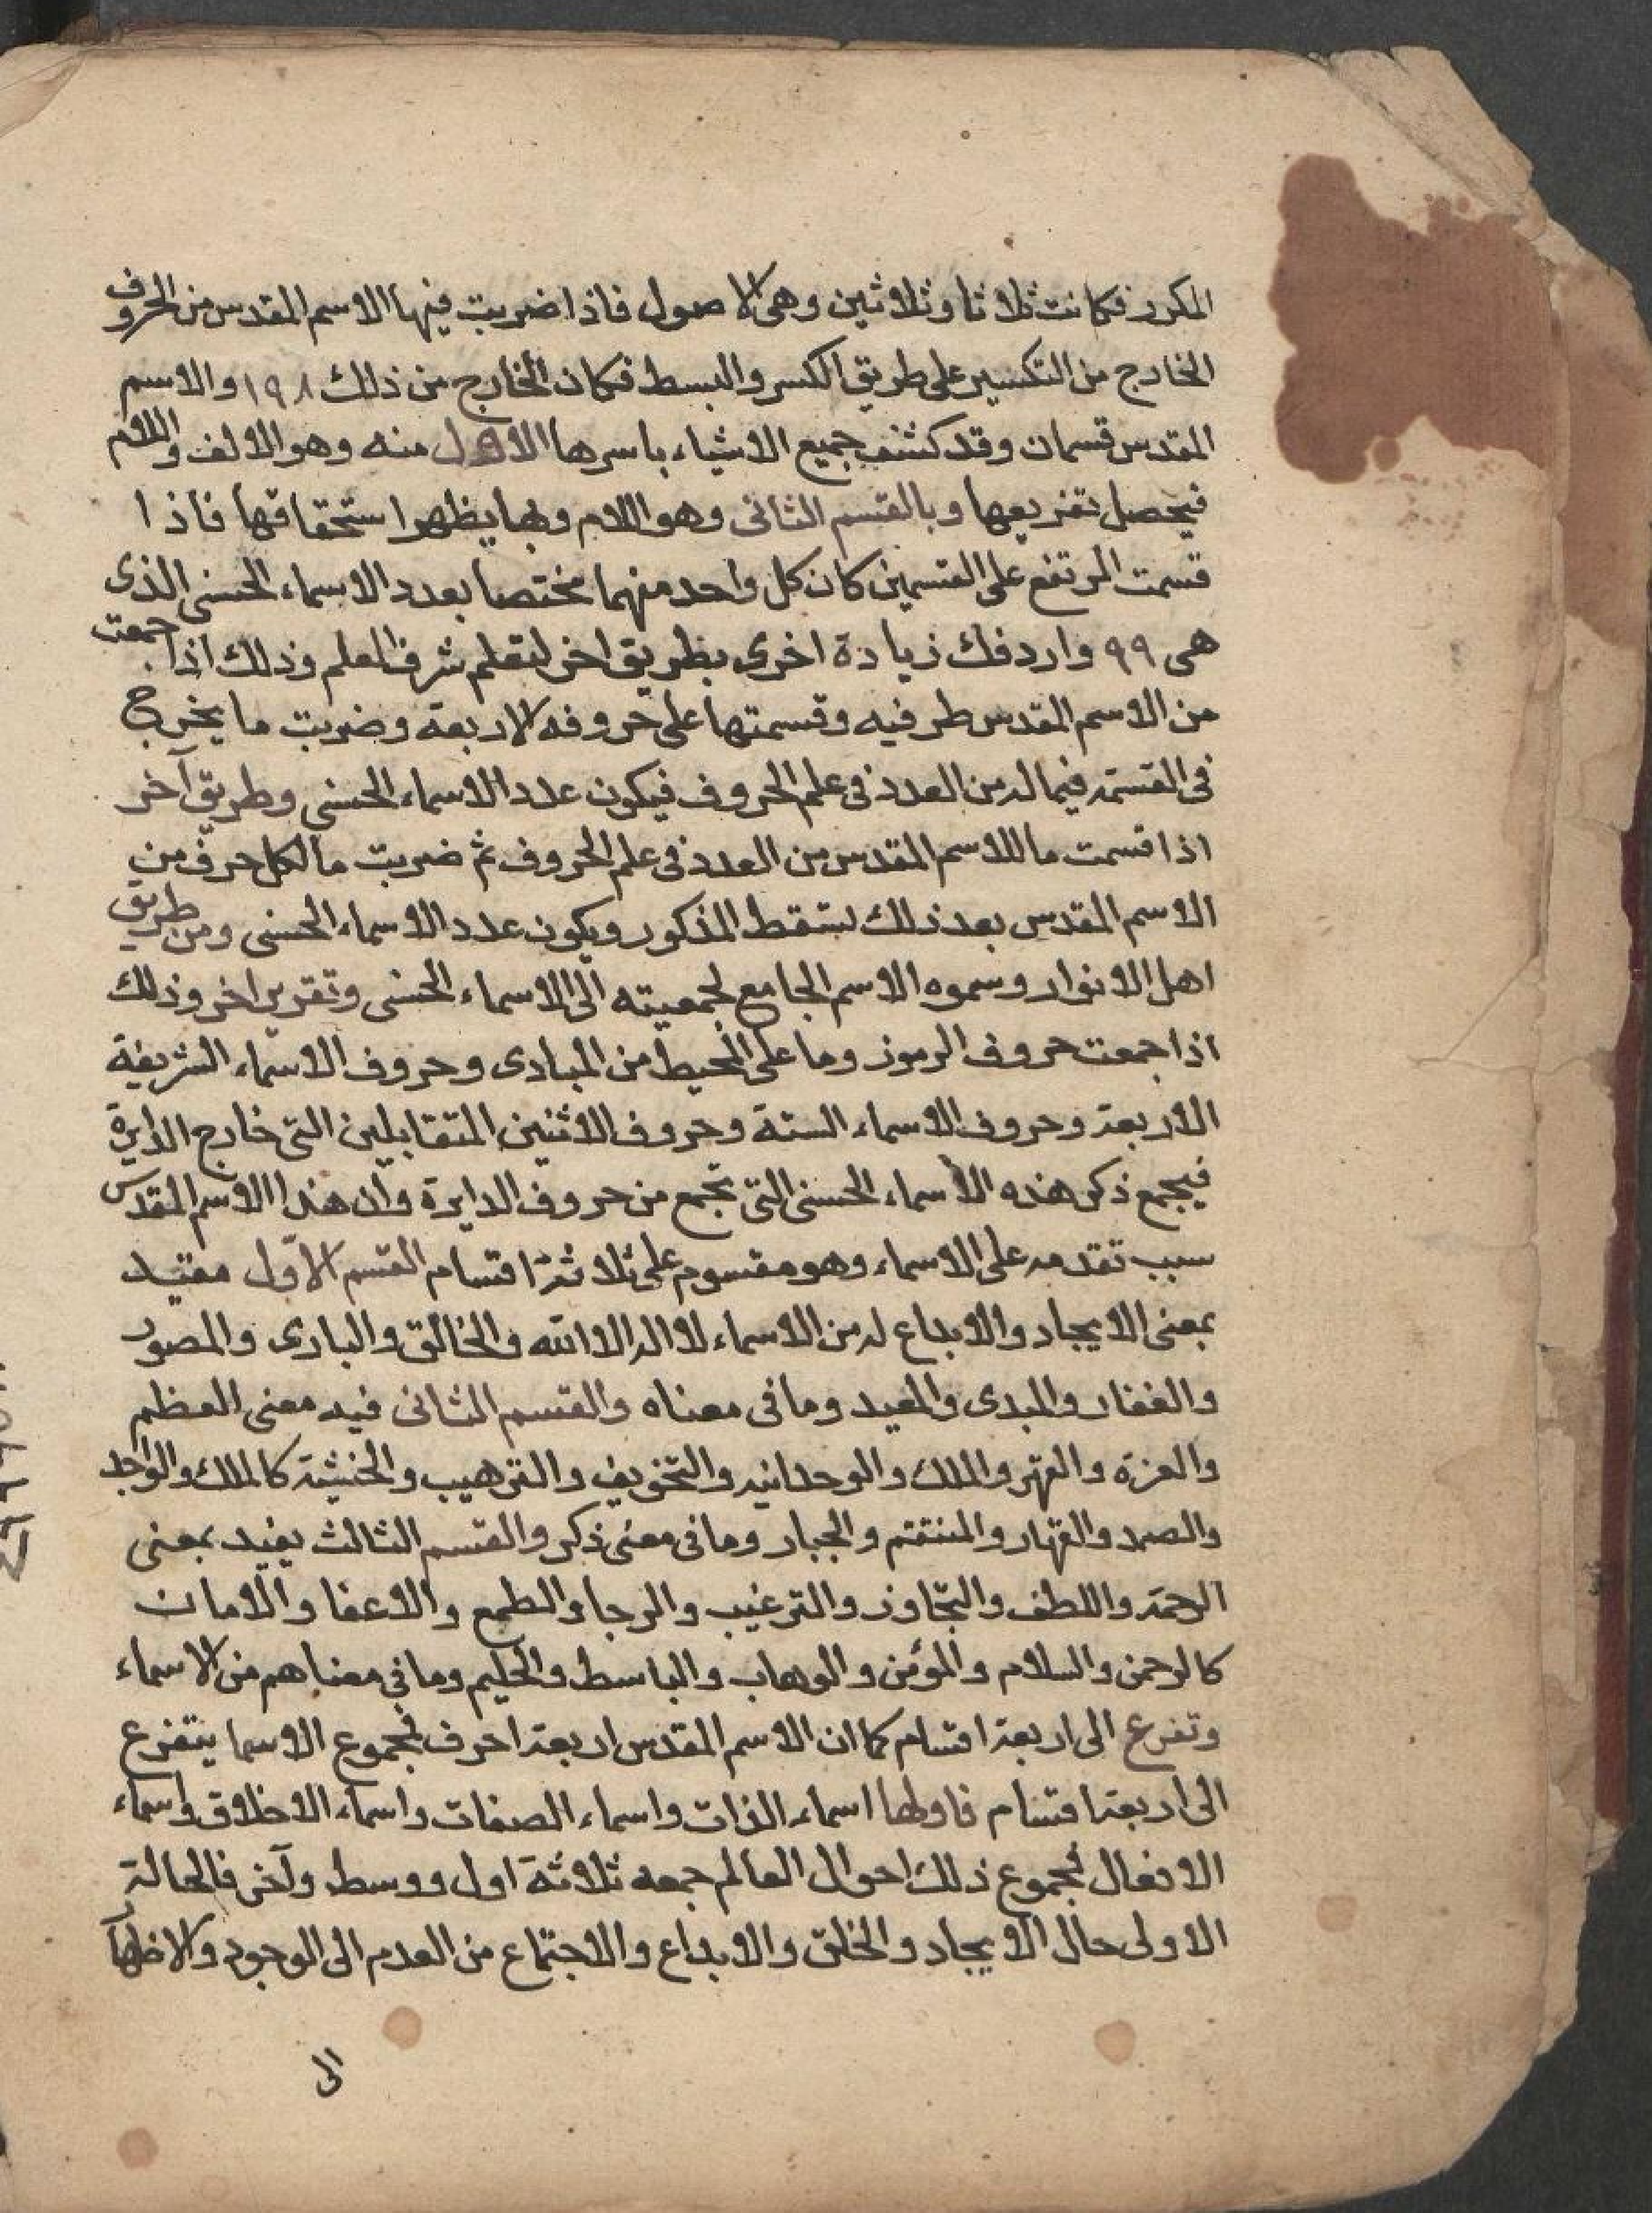 المكرر فكانت ثلاثا وثلاثين وهى الاصول فاذا ضربت فيها الاسم المقدس من الحروف
الخارج من التكسير على طريق الكسر والبسط فكان الخارج من ذلك ١٩٨ والاسم
المقدس قسمان وقد كشف جميع الاشياء باسرها الاول منه وهو الالف واللام
فيحصل تفريعها وبالقسم الثانى وهو اللام وبها يظهر استحقاقها فاذا
قسمت المرتفع على القسمين كان كل واحد منهما مختصا بعدد الاسماء الحسنى الذى
هى ٩٩ واردفك زيادة اخرى بطريق اخر لتعلم شرف العلم وذلك اذا جمعت
من الاسم المقدس طرفيه وقسمتها على حروفه الاربعة وضربت ما يخرج
فى القسمة فيما له من العدد فى علم الحروف فيكون عدد الاسماء الحسنى وطريق آخر
اذا قسمت ما للاسم المقدس من العدد فى علم الحروف ثم ضربت ما لكل حرف من
الاسم المقدس بعد ذلك لسقط المذكور ويكون عدد الاسماء الحسنى ومن طريق
اهل الانوار وسموه الاسم الجامع لجمعيته الى الاسماء الحسنى وتقرير اخر وذلك
اذا جمعت حروف الرموز وما على المحيط من المبادى وحروف الاسماء الشريفة
الاربعة وحروف الاسماء الستة وحروف الاثنين المتقابلين التى خارج الدايرة
فيجمع ذكر هذه الأسماء الحسنى التى تجمع من حروف الدايرة وان هذا الاسم المقدس
سبب تقدمه على الاسماء وهو مقسوم على ثلاثة اقسام القسم الاوّل مفيد
بمعنى الايجاد والابداع له من الاسماء لا اله الا الله والخالق والبارى والمصور
والغفار والمبدى والمعيد وما فى معناه والقسم الثانى فيه معنى العظم
والعزة والقهر والملك والوحدانية والتخويف والترهيب والخشية كالملك والواحد
والصمد والقهار والمنتقم والجبار وما فى معنى ذكر والقسم الثالث يفيد بمعنى
الرحمة واللطف والتجاوز والترغيب والرجا والطمع والاعفا والامان
كالرحمن والسلام والمؤمن والوهاب والباسط والحليم وما فى معناهم من الاسماء
وتفرع الى اربعة اقسام كما ان الاسم المقدس اربعة احرف فمجموع الاسما يتفرع
الى اربعة اقسام فاولها اسماء الذات واسماء الصفات واسماء الاخلاق واسماء
الافعال فمجموع ذلك احوال العالم جمعه ثلاثة اول ووسط وآخر فالحالة
الاولى حال الايجاد والخلق والابداع والاجتماع من العدم الى الوجود والاظهار
الى